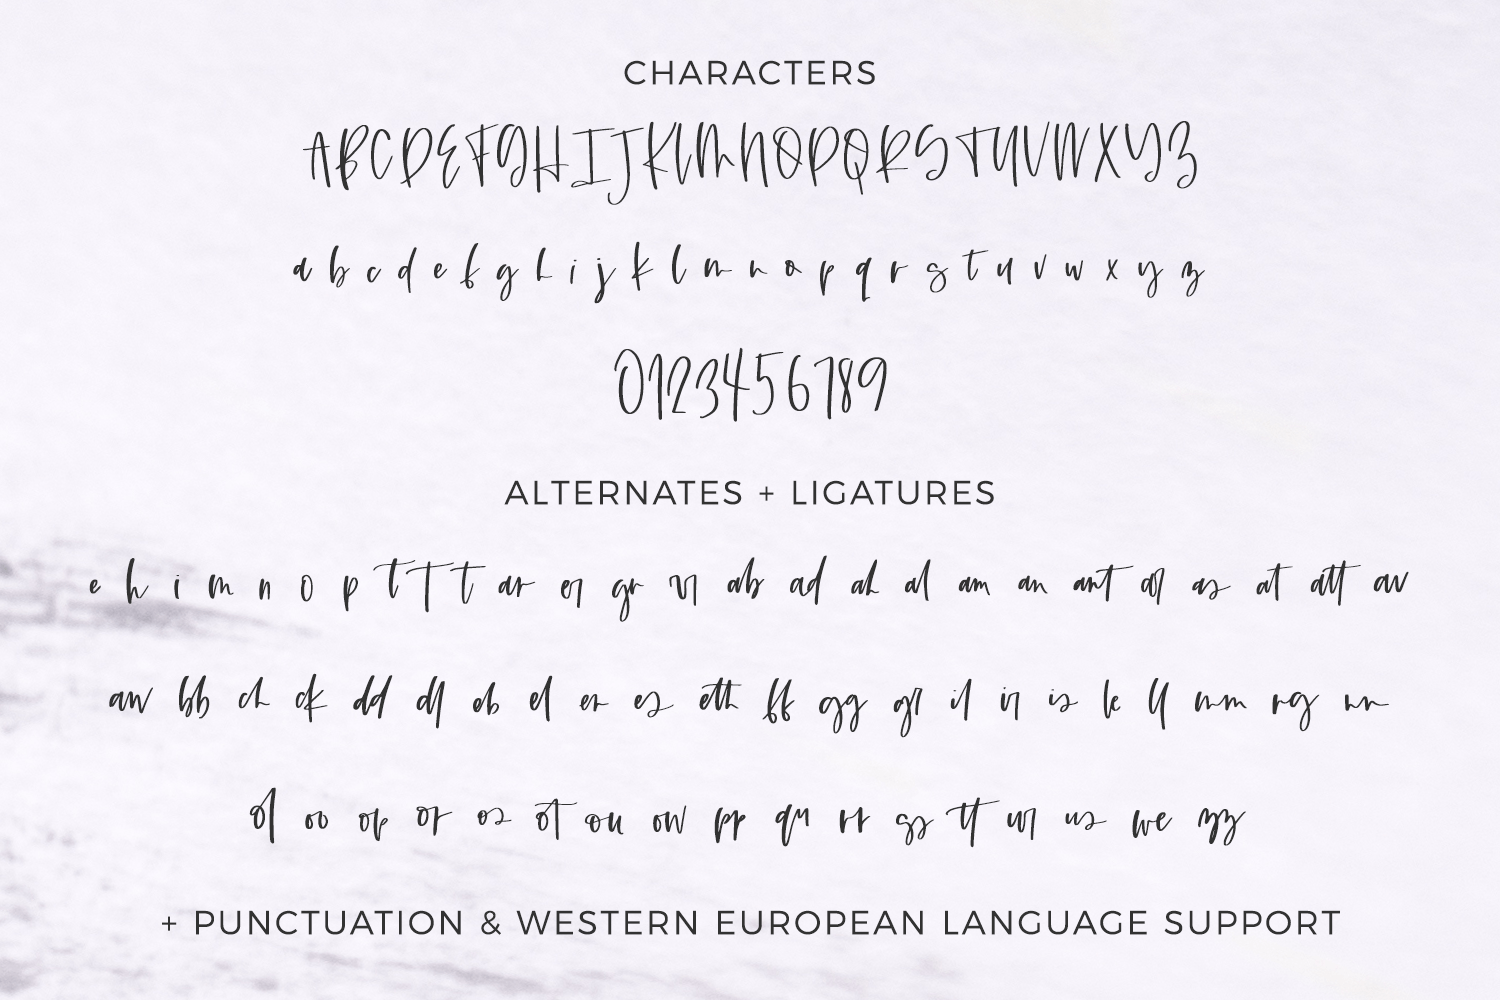 CHARACTERS
ABCDEFGHIJKLMNOPQRSTUVWXYZ
a b c d e f g h i j k l m n o p q r s t u v w x y z
0123456789
ALTERNATES + LIGATURES
e h i m n o p t t t ar er gr ur ab ad ah al am an ant as at att av
aw bb ch ck dd eb el er es eth ff gg gr il ir is k ll mm rg
ol oo op or os ot ou ow pp qu rr ss tt ur us we zz
+ PUNCTUATION & WESTERN EUROPEAN LANGUAGE SUPPORT